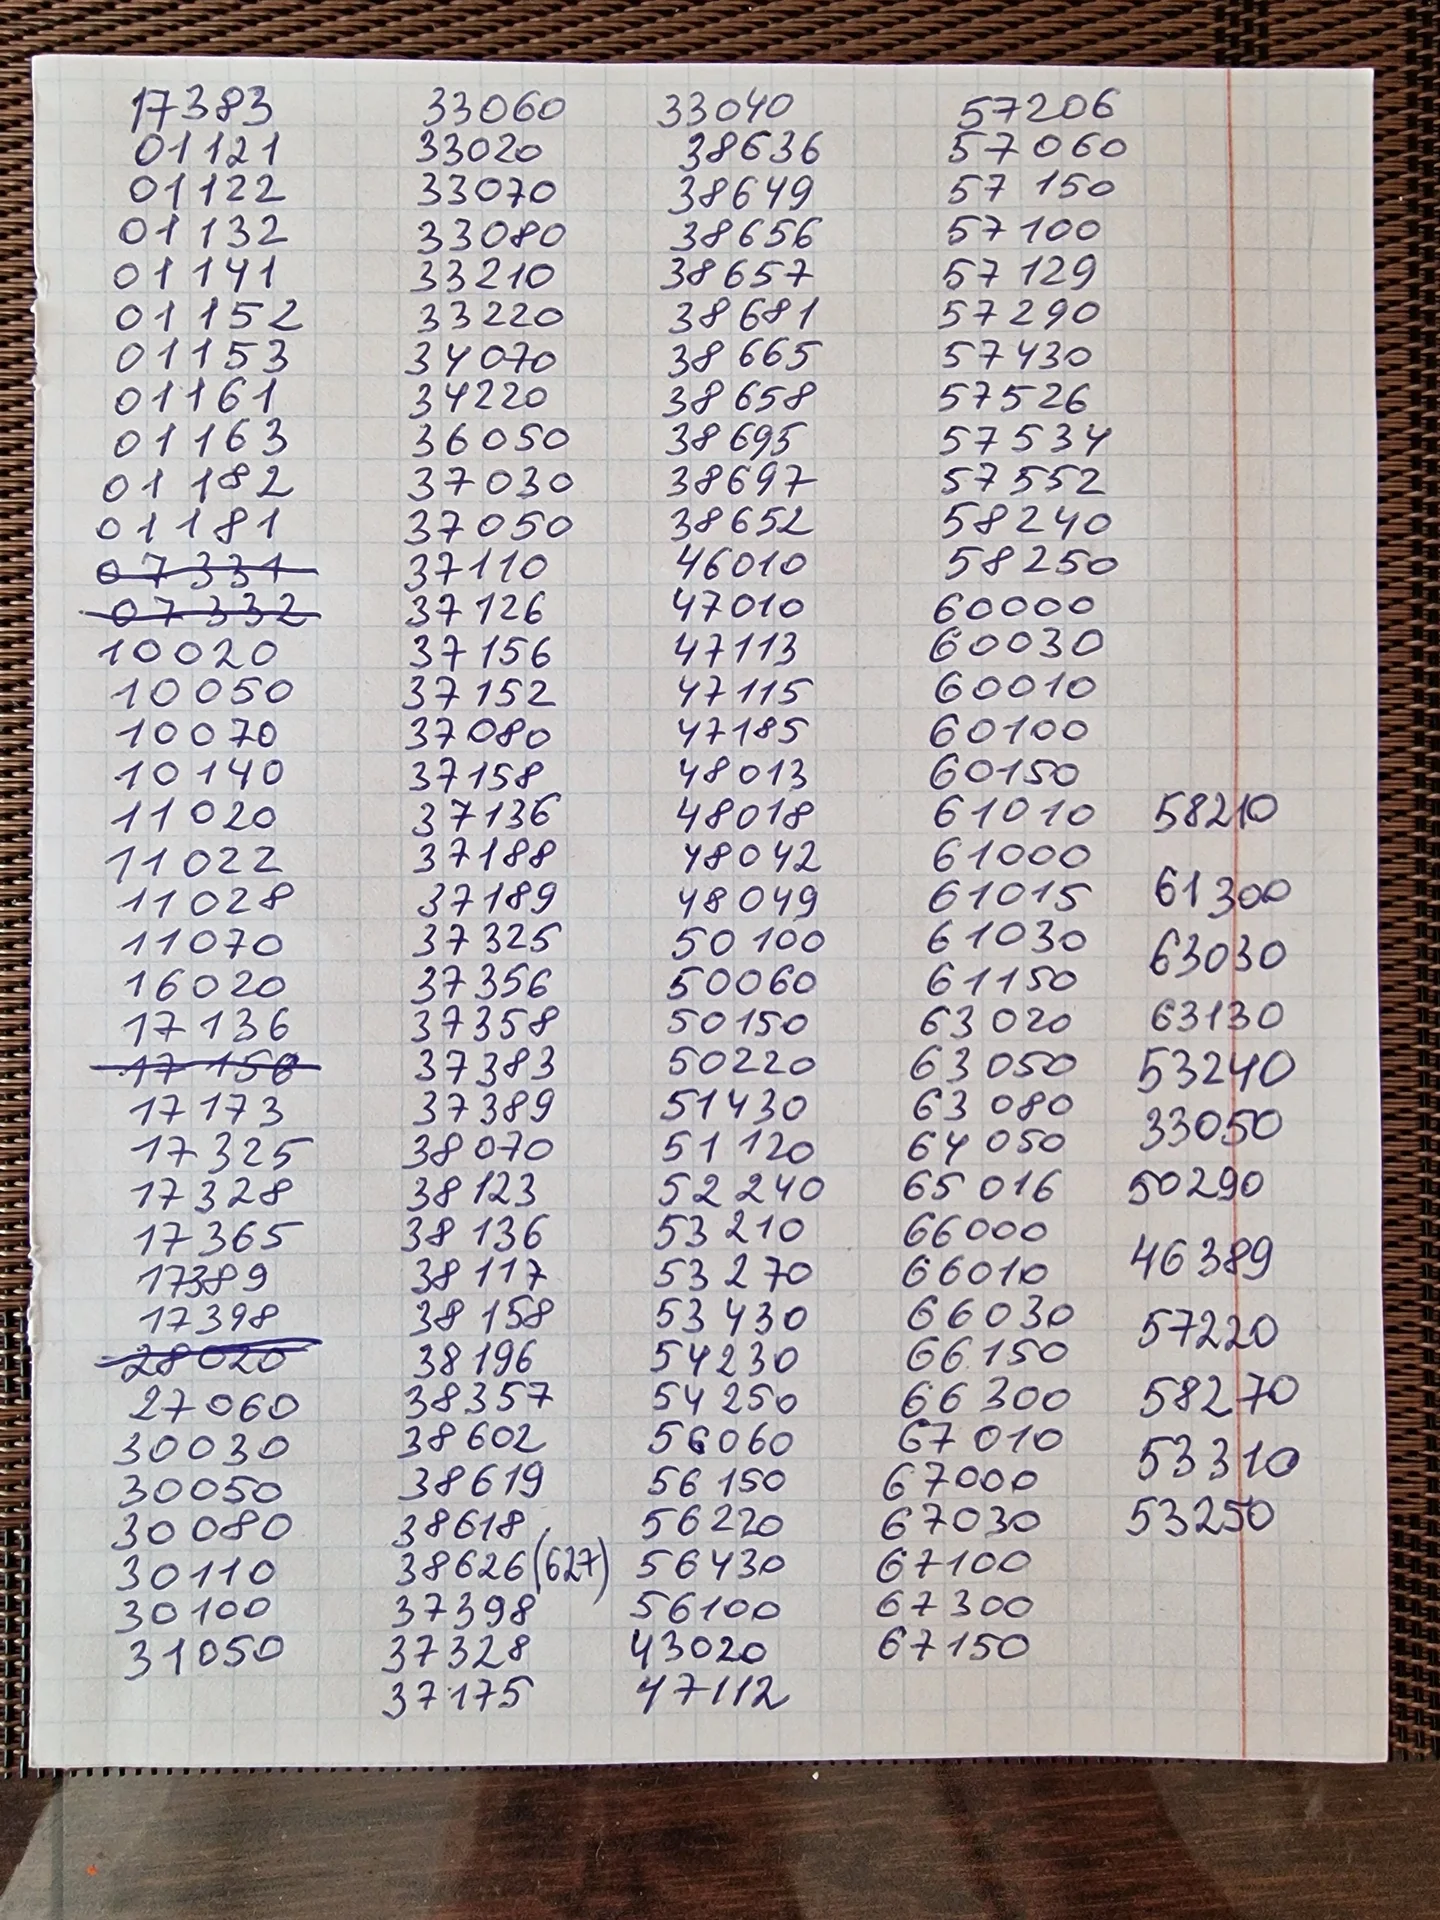 17383
01121
01122
01132
01141
01152
01153
01161
01163
01182
01181
07331
07332
10020
10050
10070
10140
11020
11022
11028
11070
16020
17136
17158
17173
17325
17328
17365
17389
17398
28020
27060
30030
30050
30080
30110
30100
31050
33060
33020
33070
33080
33210
33220
34070
34220
36050
37030
37050
37110
37126
37156
37152
37080
37158
37136
37188
37189
37325
37356
37358
37383
37389
38070
38123
38136
38117
38158
38196
38357
38602
38619
38618
38626(627)
37398
37328
37175
33040
38636
38649
38656
38657
38681
38665
38658
38695
38697
38652
46010
47010
47113
47115
47185
48013
48018
48042
48049
50100
50060
50150
50220
51430
51120
52240
53210
53270
53430
54230
54250
56060
56150
56220
56430
56100
43020
47112
57206
57060
57150
57100
57129
57290
57430
57526
57534
57552
58240
58250
60000
60030
60010
60100
60150
61010
61000
61015
61030
61150
63020
63050
63080
64050
65016
66000
66010
66030
66150
66300
67010
67000
67030
67100
67300
67150
58210
61300
63030
63130
53240
33050
50290
46389
57220
58270
53310
53250